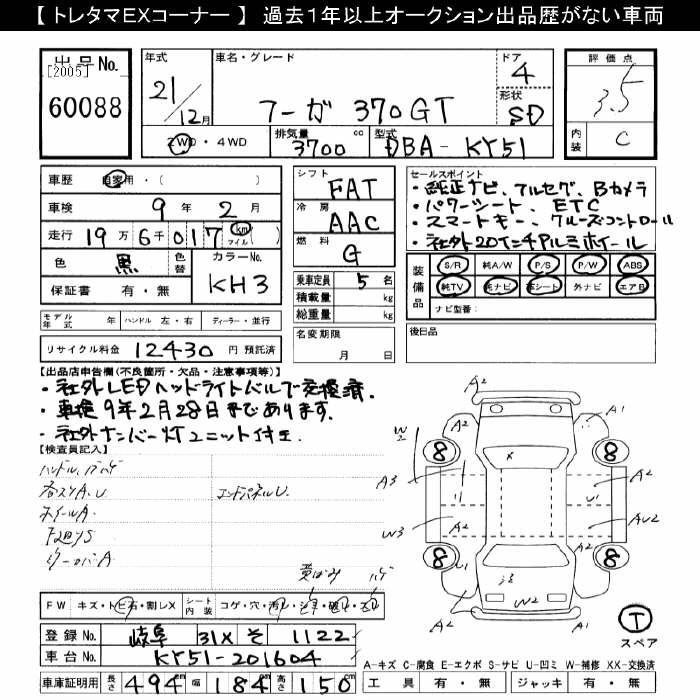 【 トレタマEXコーナー 】 過去１年以上オークション出品歴がない車両
出品No. [2005]
60088
年式 21/12月
車名・グレード フーガ 370GT
ドア 4
形状 SD
2WD・4WD
排気量 3700 cc
型式 DBA-KY51
評価点 3.5
内装 C
車歴 自家用・( )
車検 9年 2月
走行 19万6千017 km マイル ( )
色 黒 色替 カラーNo. KH3
保証書 有・無
シフト FAT
冷房 AAC
燃料 G
乗車定員 5名
積載量 kg
総重量 kg
セールスポイント
・純正ナビ、フルセグ、Bカメラ
・パワーシート、ETC
・スマートキー、クルーズコントロール
・社外20インチアルミホイール
装備品 S/R 純A/W P/S P/W ABS
純TV 純ナビ 革シート 外ナビ エアB
ナビ型番:
モデル年式 年 ハンドル 左・右 ディーラー・並行
名変期限 月 日
後日品
リサイクル料金 12430 円 預託済
【出品店申告欄(不良箇所・欠品・注意事項等)】
・社外LEDヘッドライトバルブ交換済.
・車検9年2月28日まであります.
・社外ナンバー灯ユニット付き
【検査員記入】
ハンドル、
A.U エンドパネルU.
ホイールA
A2 A1
W2 A2 A2
8 8
A3 A2
U1 U1
W3 A2 A2 AU2
8 8
U1 U1
W2
A2 A1
FW キズ・トビ石・割レX シート内装 コゲ・穴・汚レ・シミ・破レ・スレ
T
スペア
登録No. 岐阜 31X そ 1122
車台No. KY51-201604
車庫証明用 長さ 494 幅 184 高さ 150
A-キズ C-腐食 E-エクボ S-サビ U-凹ミ W-補修 XX-交換済
工具 有・無 ジャッキ 有・無